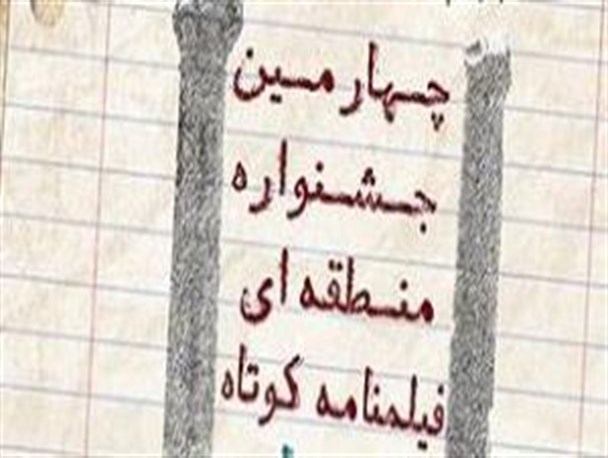 چهارمین
جشنواره
منطقه ای
فیلمنامه کوتاه